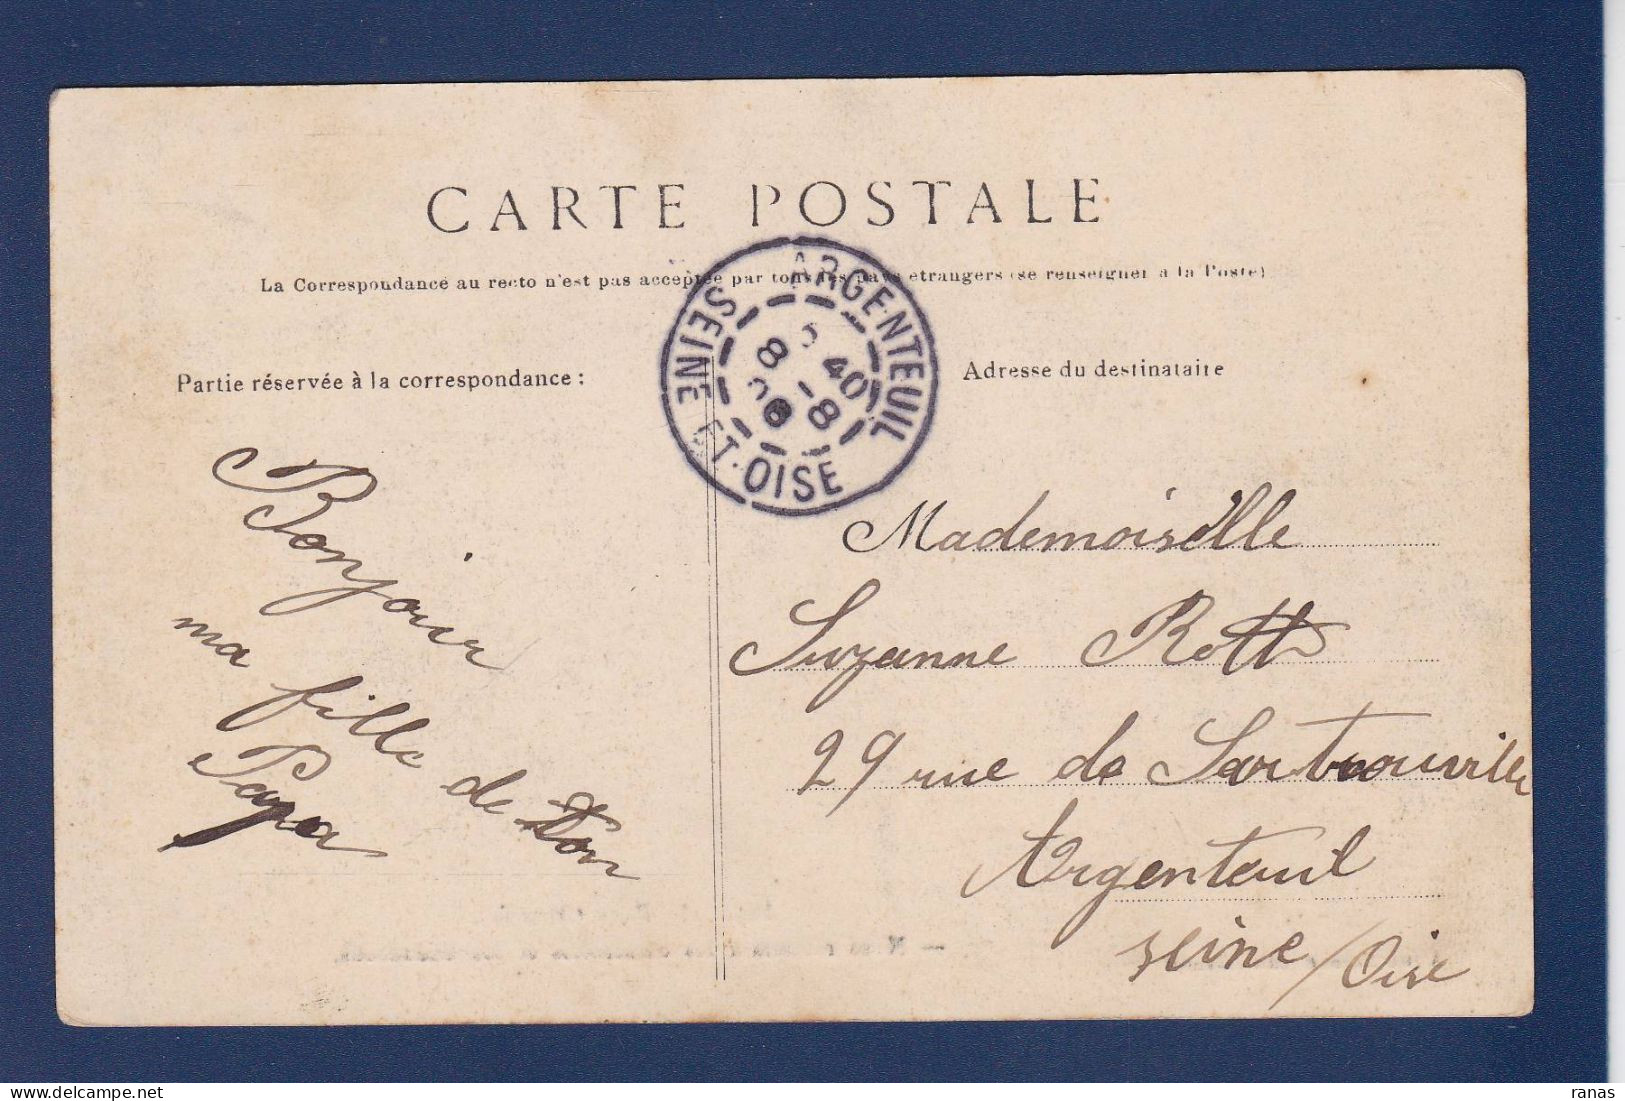 CARTE POSTALE
La Correspondance au recto n'est pas acceptée par tous les pays etrangers (se renseigner a la Poste)
ARGENTEUIL
SEINE ET OISE
8 40
8 - 8
Partie réservée à la correspondance :
Adresse du destinataire
Bonjour
ma fille de ton
Papa
Mademoiselle
Suzanne Roth
29 rue de Sartrouville
Argenteuil
seine/Oise
ranas